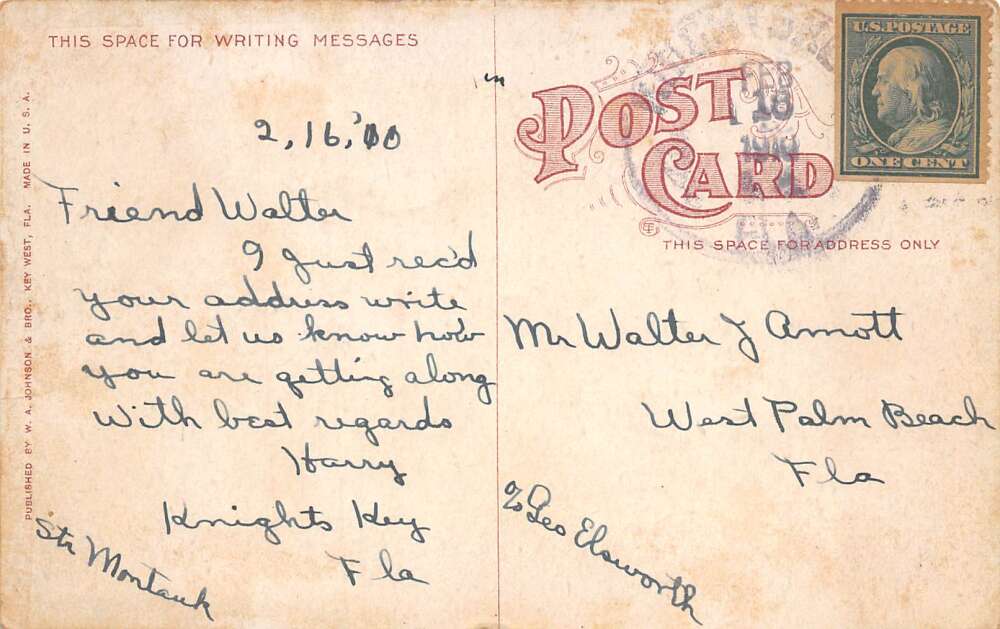 THIS SPACE FOR WRITING MESSAGES
2,16,'10
Friend Walter
I just rec'd
your address write
and let us know how
you are getting along
With best regards
Harry
Knights Key
Fla
Str Montauk
PUBLISHED BY W. A. JOHNSON & BRO., KEY WEST, FLA. MADE IN U. S. A.
POST
CARD
THIS SPACE FOR ADDRESS ONLY
FEB
18
U.S. POSTAGE
ONE CENT
Mr Walter J Arnott
West Palm Beach
Fla
c/o Geo Elsworth